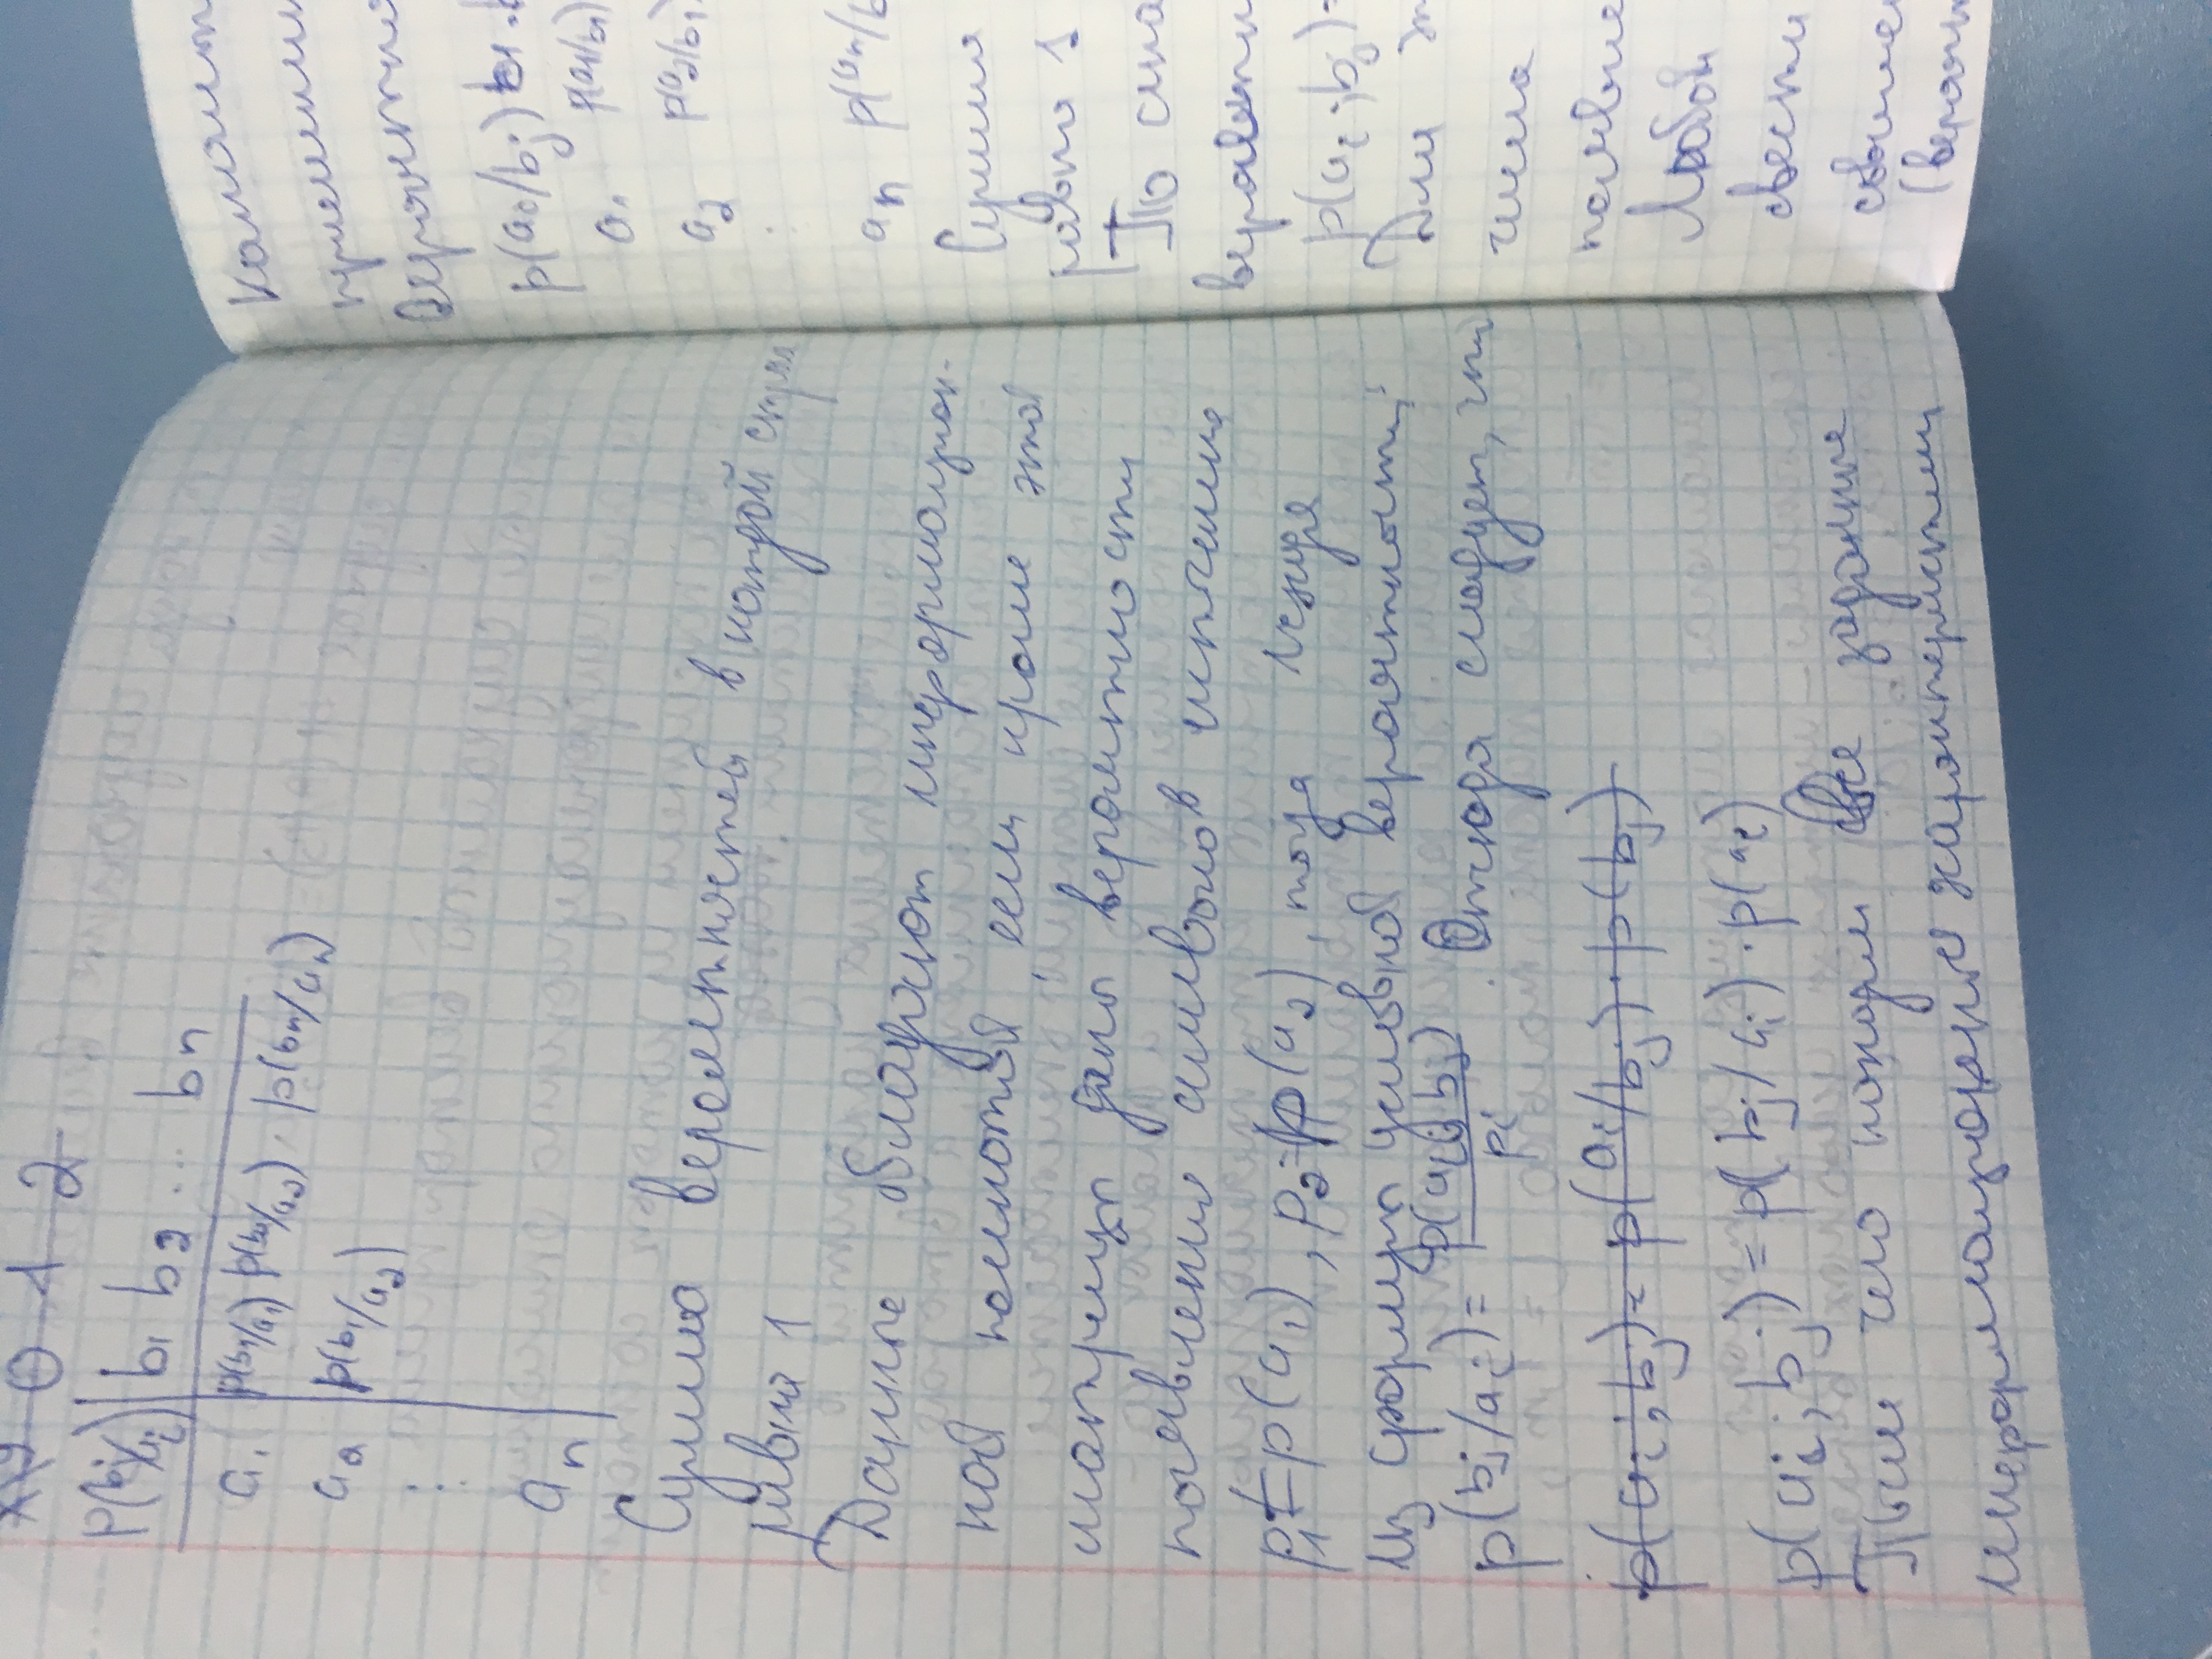 x\y 0 1 2
p(bj/ai) b1 b2 ... bn
a1 p(b1/a1) p(b2/a2) . p(bn/an)
a2 p(b1/a2)
⋮
an
Сумма вероятностей в каждой
равна 1
Данные обладают информацион-
ной полнотой, если кроме этой
матрицы даны вероятности
появления символов источника
p1=p(a1), p2=p(a2), тогда исходя
из формулы условной вероятности:
p(bj/ai)= p(ai;bj)/pi . Отсюда следует, что
p(ai;bj)= p(ai/bj)·p(bj)
p(ai;bj)=p(bj/ai)·p(ai)
После чего находим все заданные
информационные характеристики
Вероятно
p(ai/bj) b1
a1 p(a1/b1)
a2 p(a2/b1)
⋮
an p(an/b
Сумма
равна 1
По
p(ai;bj)=
Для
числа
Любой
свести